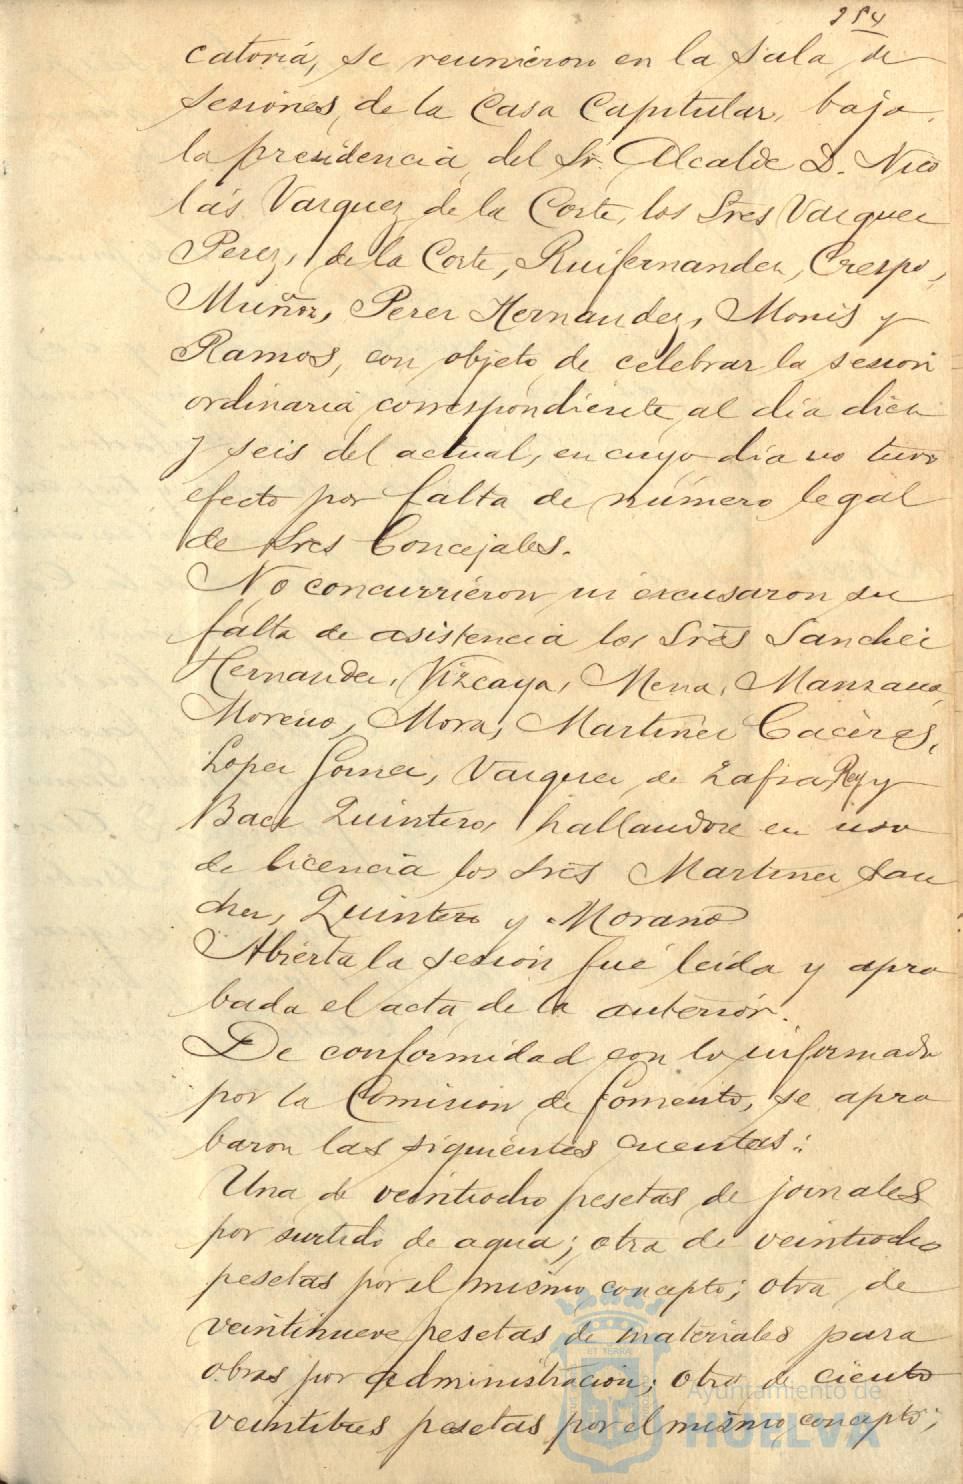 254
catoria, se reunieron en la Sala de
sesiones, de la Casa Capitular, bajo
la presidencia del Sr. Alcalde D. Nico
lás Vazquez de la Corte, los Sres Vazquez
Perez, de la Corte, Ruifernandez, Crespo,
Muñoz, Perez Hernandez, Monis y
Ramos, con objeto de celebrar la sesion
ordinaria correspondiente al dia diez
y seis del actual, en cuyo dia no tuvo
efecto por falta de número legal
de Sres Concejales.
No concurrieron ni excusaron su
falta de asistencia los Sres Sanchez
Hernandez, Vizcaya, Mena, Manzano,
Moreno, Mora, Martinez Cáceres,
Lopez Gomez, Vazquez de Zafra, Rey y
Baez Quintero, hallandose en uso
de licencia los Sres Martinez San
chez, Quintero y Morano
Abierta la sesion fué leida y apro
bada el acta de la anterior.
De conformidad con lo informado
por la Comision de Fomento, se apro
baron las siguientes cuentas:
Una de veintiocho pesetas de jornales
por surtido de agua; otra de veintiocho
pesetas por el mismo concepto; otra de
veintinueve pesetas de materiales para
obras por administracion; otra de ciento
veintitres pesetas por el mismo concepto;
ET TERRA
Ayuntamiento de
HUELVA